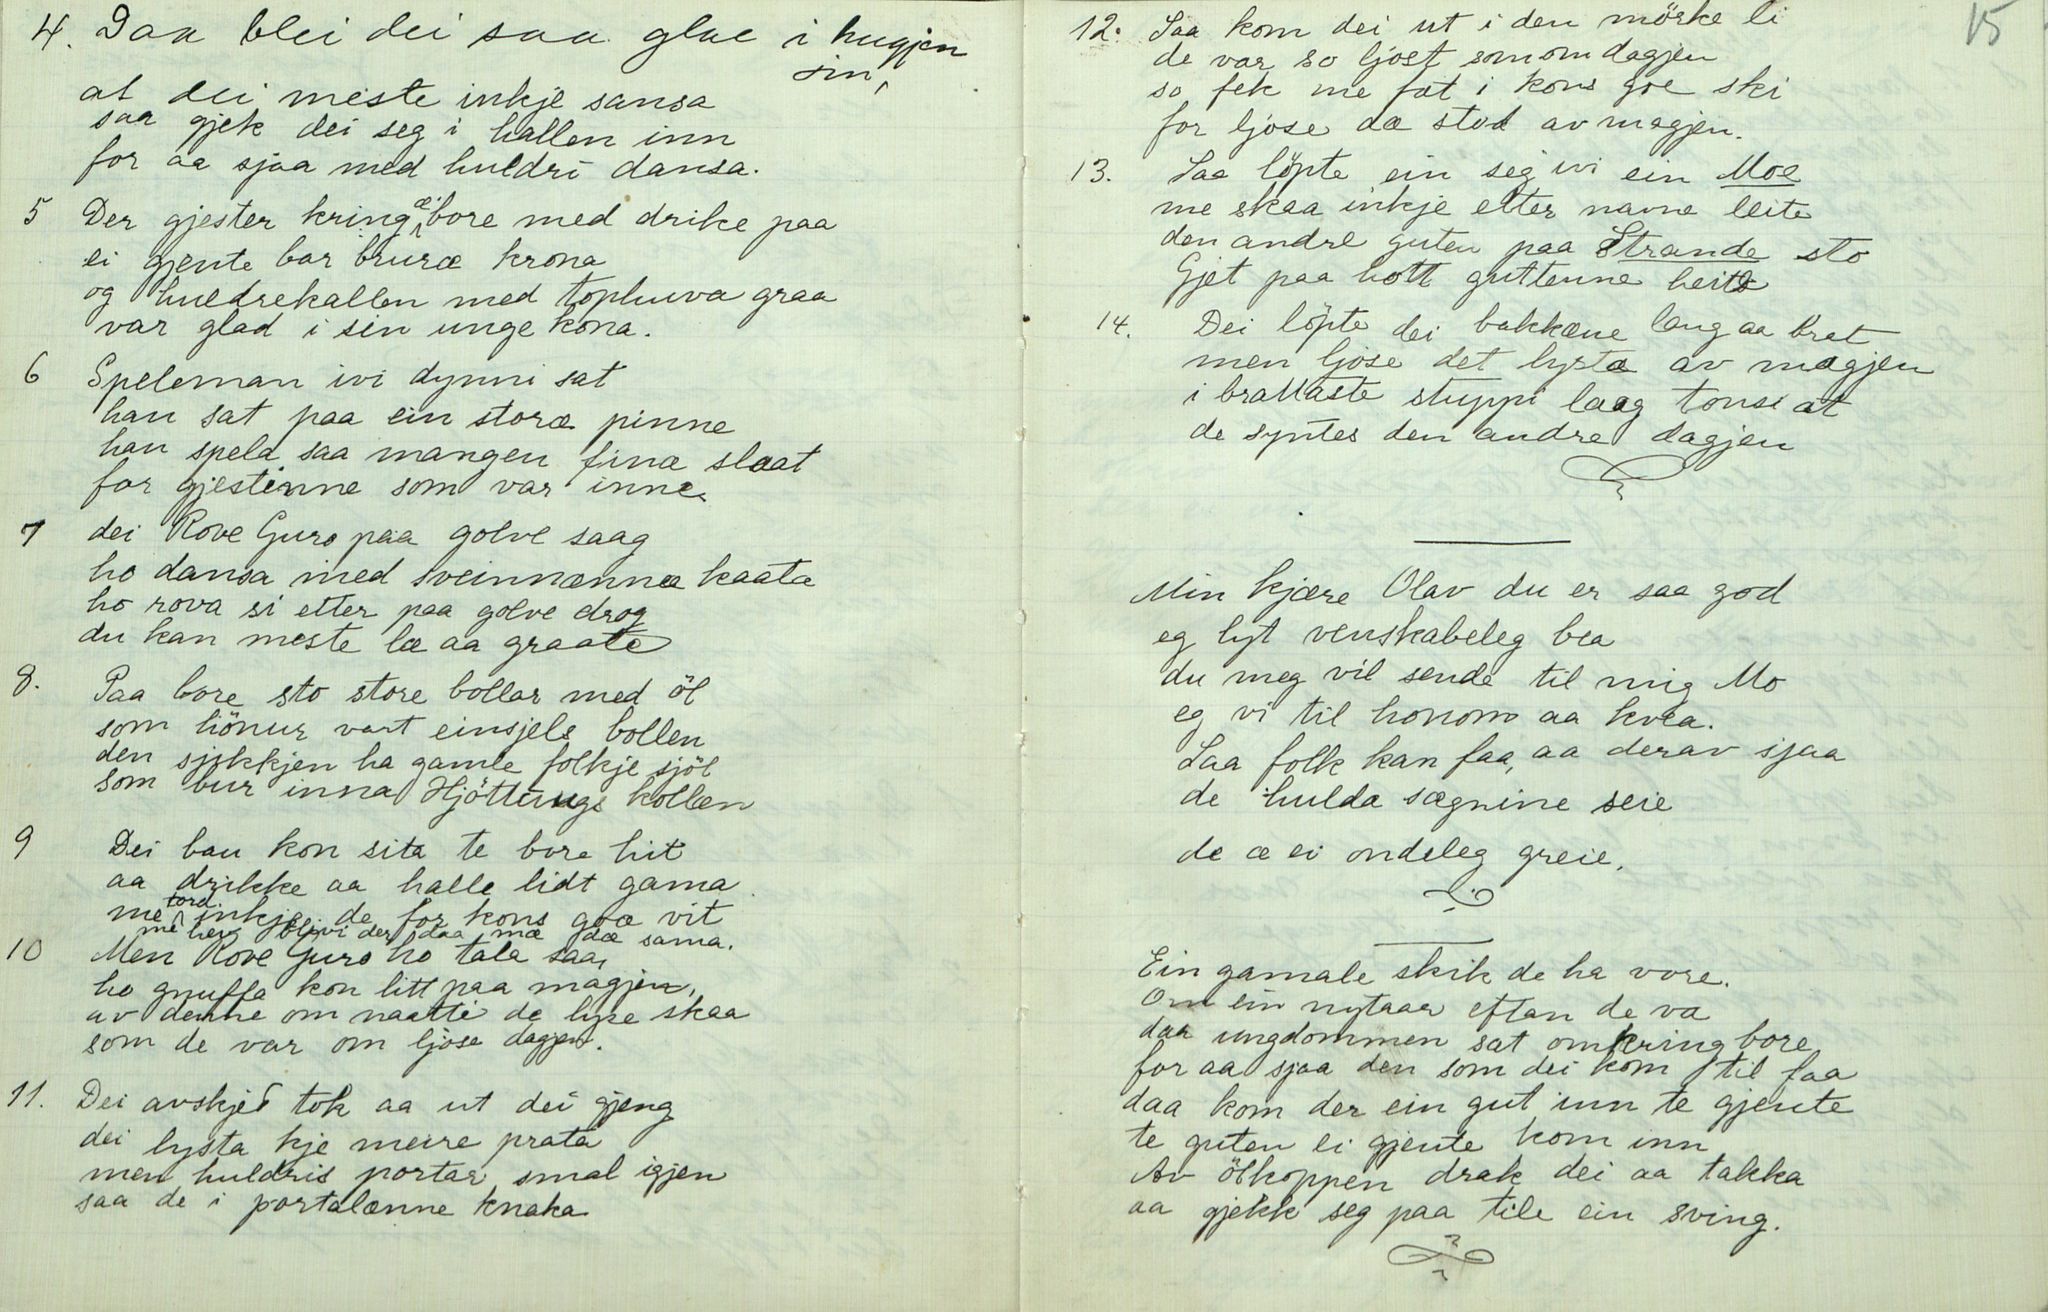 4. Daa blei dei saa glae i hugjen
sin,
at dei meste inkje sansa
saa gjek dei seg i hallen inn
for aa sjaa med huldri dansa.
5 Der gjester kring æi bore med drike paa
ei gjente bar bruræ krona
og huldrekallen med tophuva graa
var glad i sin unge kona.
6 Speleman ivi dynni sat
han sat paa ein storæ pinne
han spela saa mangen finæ slaat
for gjestinne som var inne.
7 dei Rove Guro paa golve saag
ho dansa med sveinnænnæ kaata
ho rova si etter paa golve drog
du kan meste læ aa graate
8. Paa bore sto store bollar med öl
som hönur vart einsjels bollen
den sjikkjen ha gamle folkje sjöl
som bur inna Hjöttungs kollen
9 Dei bau kon sita te bore hit
aa drikke aa halle lidt gama
me tord inkje de for kons goæ vit
me hev blivi der daa mæ dæ sama.
10 Men Rove Guro ho tala saa,
ho gnuffa kon litt paa magjen,
av denne om naatti de lyse skaa
som de var om ljose dagjen.
11. Dei avskjed tok aa ut dei gjeng
dei lysta kje meire prata
men huldris portar smal igjen
saa de i portalænne knaka
15
12. Saa kom dei ut i den mörke li
de var so ljost somom dagjen
so fek me fat i kons goe ski
for ljose dæ stod av magjen.
13. Saa löpte ein seg ivi ein Moe
me skaa inkje etter navne leite
den andre guten paa Strande sto
Gjet paa hott guttenne heite
14. Dei löpte dei bakkæne lang aa bret
men ljose det lystæ av mægjen
i brattaste stuppi laag tonsi at
de syntes den andre dagjen
Min kjære Olav du er saa god
eg lyt venskabeleg bea
du meg vil sende til mig Mo
eg vi til honom aa kvea.
Saa folk kan faa, aa derav sjaa
de hulda sægnine seie
de æ ei ondeleg greie.
Ein gamale skik de ha vore.
Om ein nytaar eftan de va
daa ungdommen sat omkring bore
for aa sjaa den som dei kom til faa
daa kom der ein gut inn te gjente
te guten ei gjente kom inn
Av ölkoppen drak dei aa takka
aa gjekk seg paa tile ein sving.